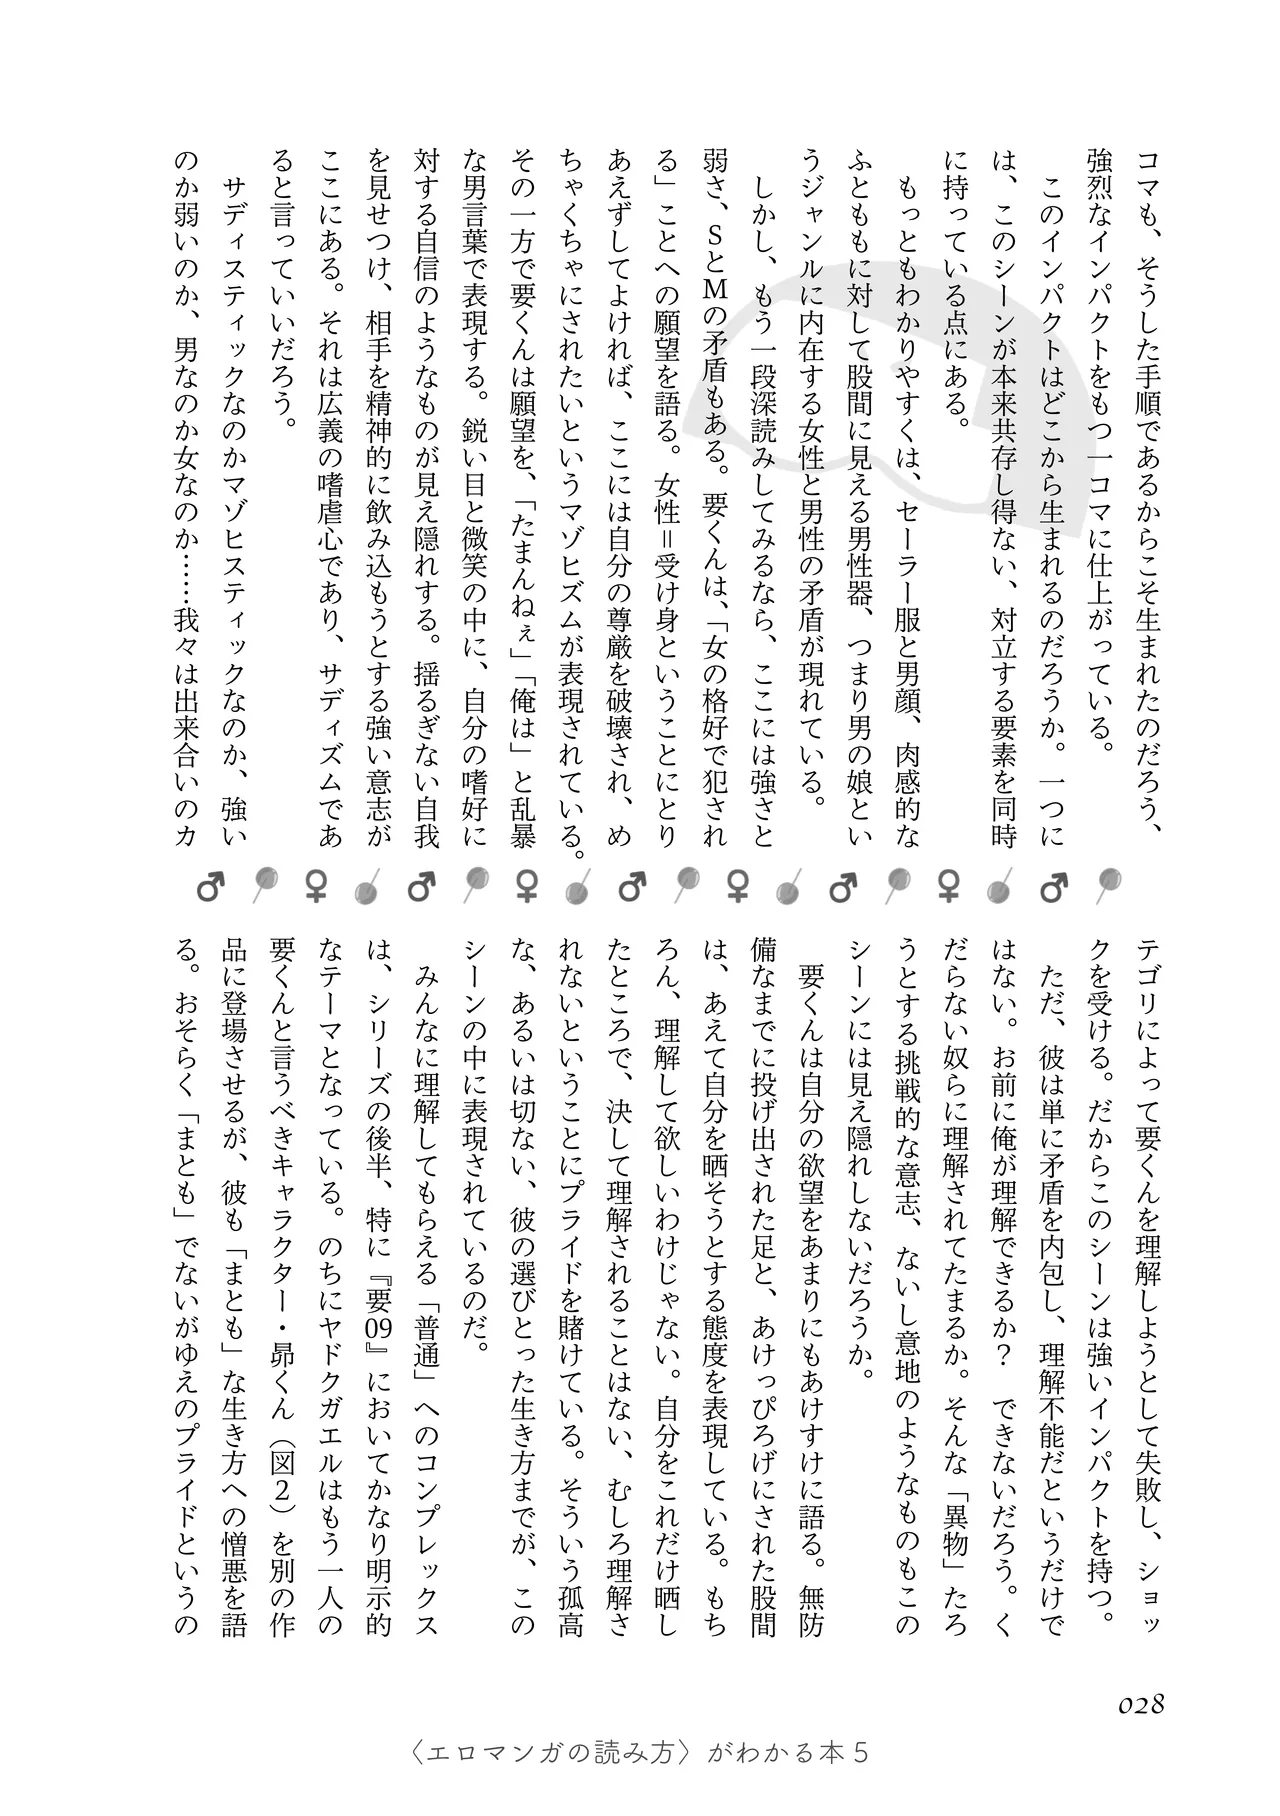 コマも、そうした手順であるからこそ生まれたのだろう、
強烈なインパクトをもつ一コマに仕上がっている。
このインパクトはどこから生まれるのだろうか。一つに
は、このシーンが本来共存し得ない、対立する要素を同時
に持っている点にある。
もっともわかりやすくは、セーラー服と男顔、肉感的な
ふとももに対して股間に見える男性器、つまり男の娘とい
うジャンルに内在する女性と男性の矛盾が現れている。
しかし、もう一段深読みしてみるなら、ここには強さと
弱さ、SとMの矛盾もある。要くんは、「女の格好で犯され
る」ことへの願望を語る。女性＝受け身ということにとり
あえずしてよければ、ここには自分の尊厳を破壊され、め
ちゃくちゃにされたいというマゾヒズムが表現されている。
その一方で要くんは願望を、「たまんねぇ」「俺は」と乱暴
な男言葉で表現する。鋭い目と微笑の中に、自分の嗜好に
対する自信のようなものが見え隠れする。揺るぎない自我
を見せつけ、相手を精神的に飲み込もうとする強い意志が
ここにある。それは広義の嗜虐心であり、サディズムであ
ると言っていいだろう。
サディスティックなのかマゾヒスティックなのか、強い
のか弱いのか、男なのか女なのか……我々は出来合いのカ
♂ ♀ ♂ ♀ ♂ ♀ ♂ ♀ ♂
テゴリによって要くんを理解しようとして失敗し、ショッ
クを受ける。だからこのシーンは強いインパクトを持つ。
ただ、彼は単に矛盾を内包し、理解不能だというだけで
はない。お前に俺が理解できるか？　できないだろう。く
だらない奴らに理解されてたまるか。そんな「異物」たろ
うとする挑戦的な意志、ないし意地のようなものもこの
シーンには見え隠れしないだろうか。
要くんは自分の欲望をあまりにもあけすけに語る。無防
備なまでに投げ出された足と、あけっぴろげにされた股間
は、あえて自分を晒そうとする態度を表現している。もち
ろん、理解して欲しいわけじゃない。自分をこれだけ晒し
たところで、決して理解されることはない、むしろ理解さ
れないということにプライドを賭けている。そういう孤高
な、あるいは切ない、彼の選びとった生き方までが、この
シーンの中に表現されているのだ。
みんなに理解してもらえる「普通」へのコンプレックス
は、シリーズの後半、特に『要09』においてかなり明示的
なテーマとなっている。のちにヤドクガエルはもう一人の
要くんと言うべきキャラクター・昴くん（図2）を別の作
品に登場させるが、彼も「まとも」な生き方への憎悪を語
る。おそらく「まとも」でないがゆえのプライドというの
028
〈エロマンガの読み方〉がわかる本5